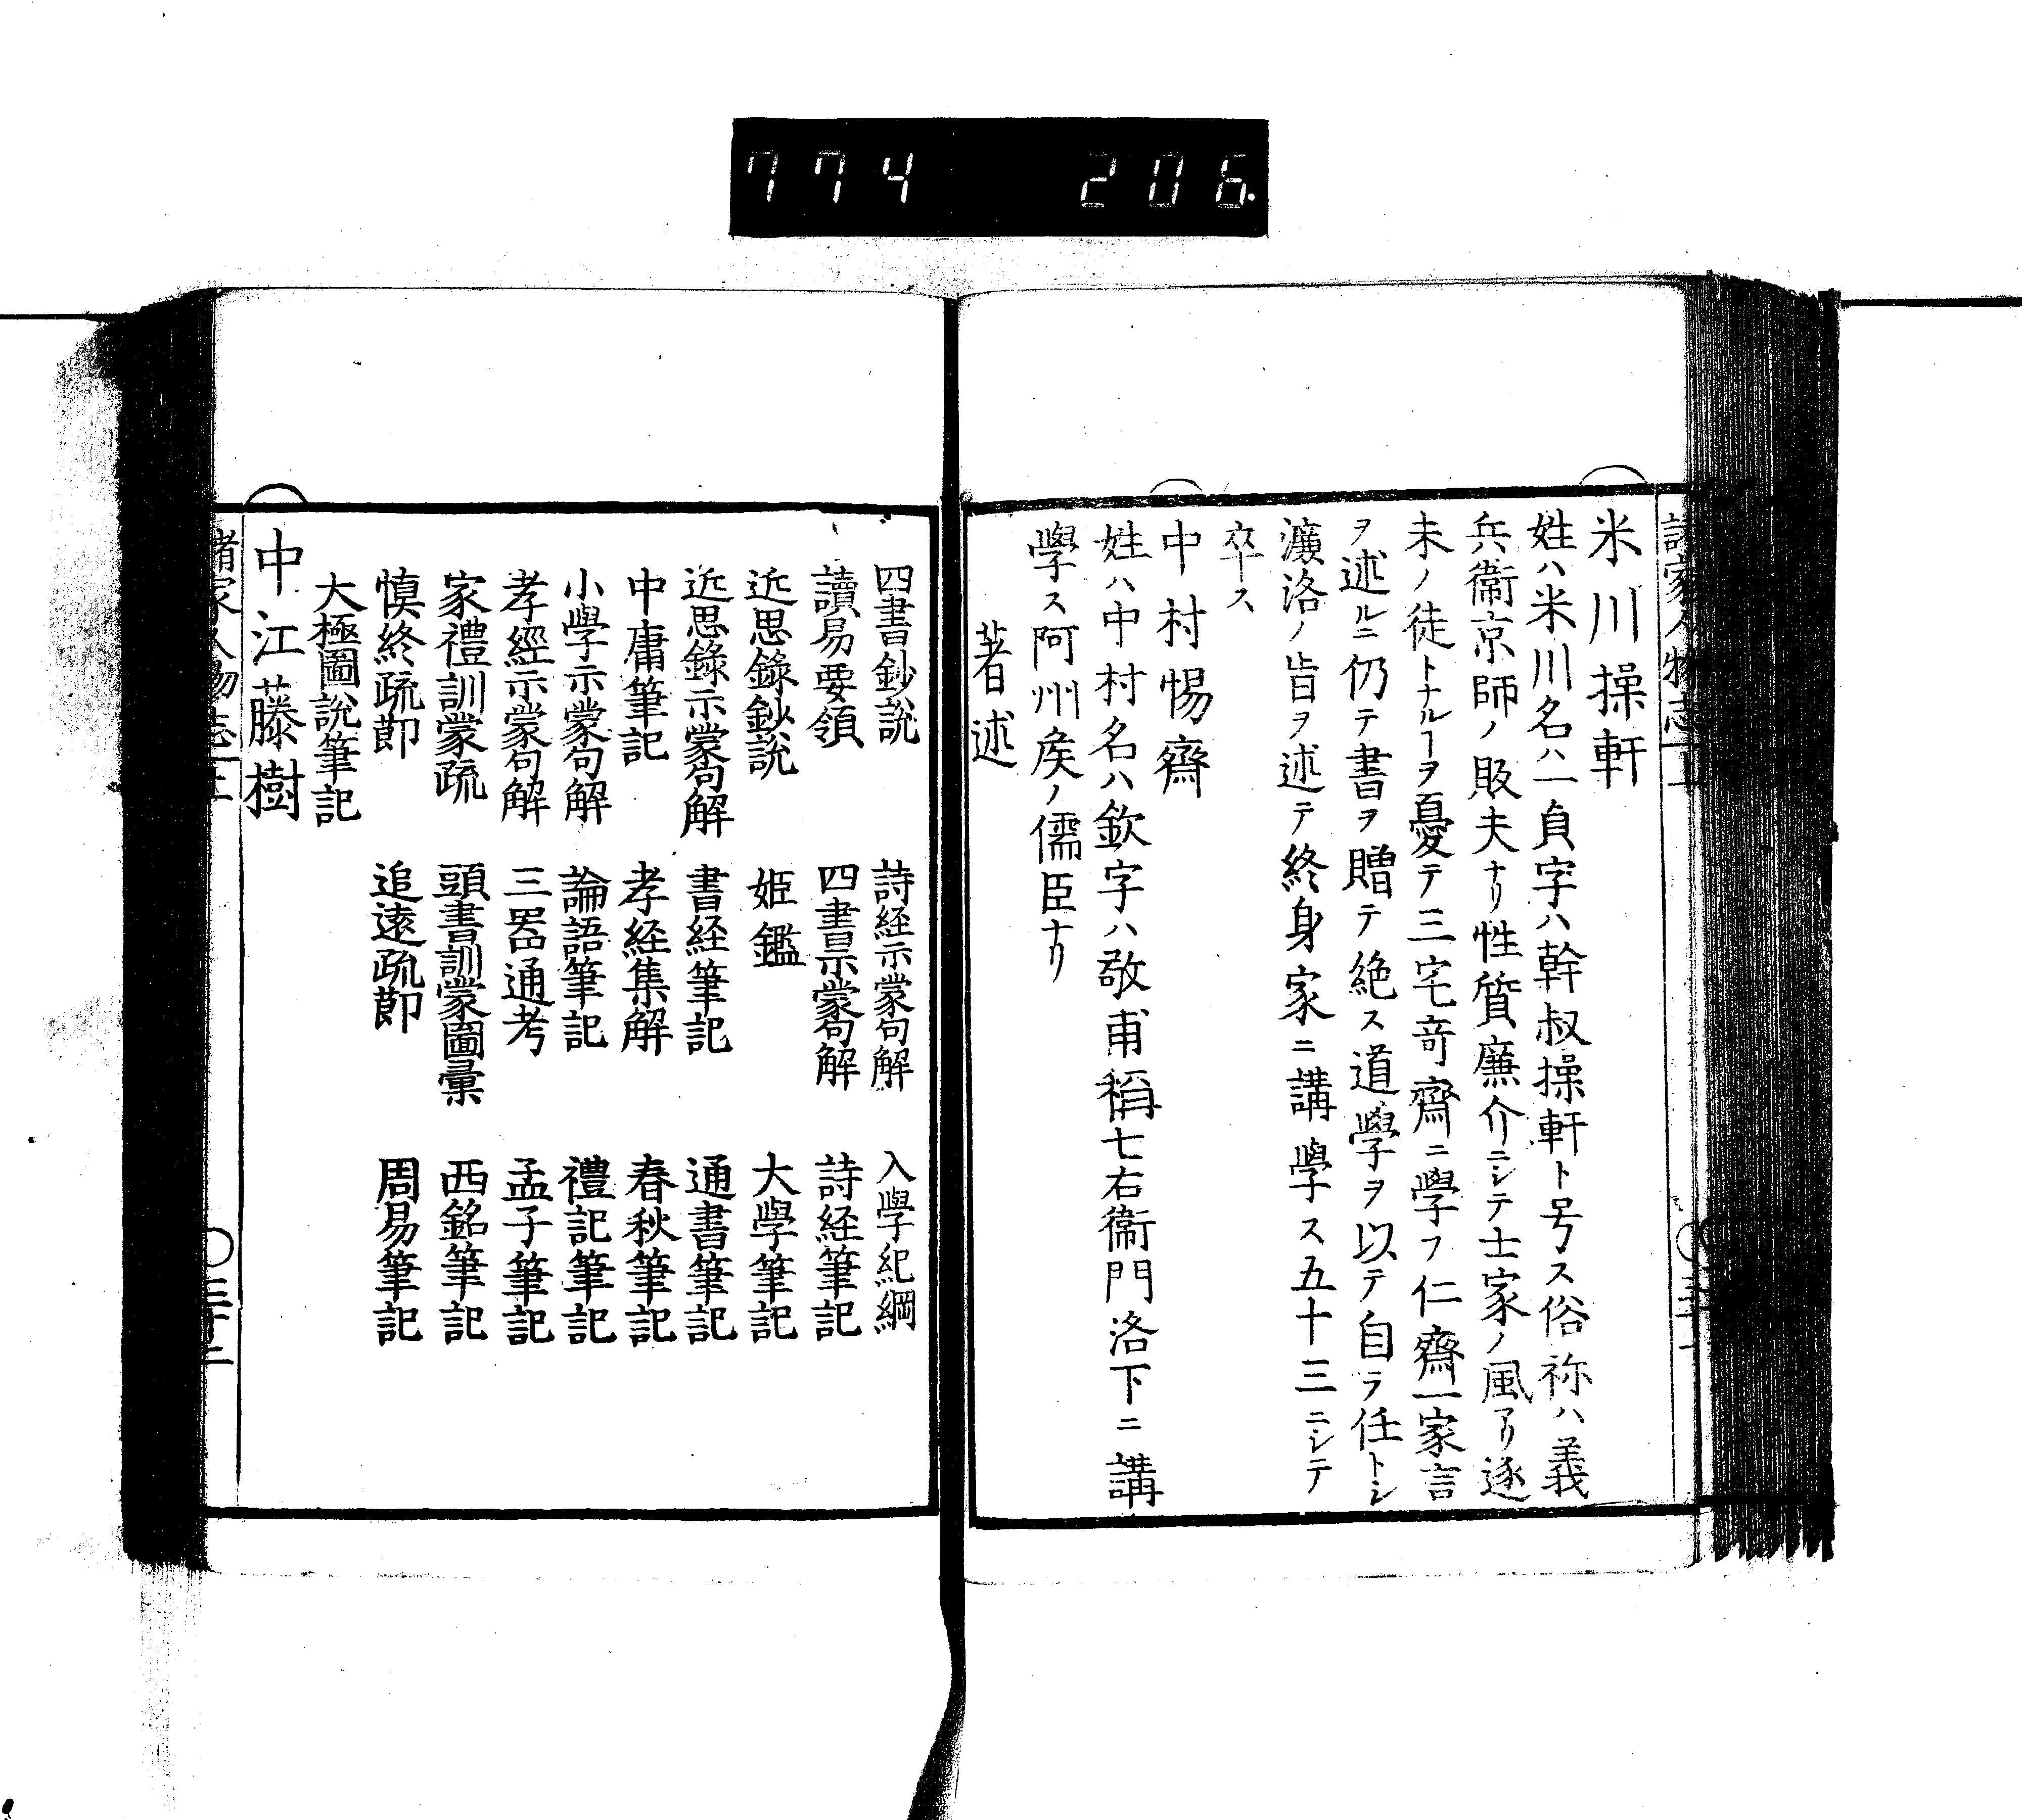 774 206.
諸家人物志 上
米川操軒
姓ハ米川名ハ一貞字ハ幹叔操軒ト号ス俗称ハ義
兵衞京師ノ販夫ナリ性質廉介ニシテ士家ノ風アリ逐
未ノ徒トナルヿヲ憂テ三宅竒齋ニ學フ仁齋一家言
ヲ述ルニ仍テ書ヲ贈テ絶ス道學ヲ以テ自ラ任トシ
濂洛ノ㫖ヲ述テ終身家ニ講學ス五十三ニシテ
卒ス
中村惕齋
姓ハ中村名ハ欽字ハ敬甫稱七右衞門洛下ニ講
學ス阿州矦ノ儒臣ナリ
著述
四書鈔説 詩経示蒙句解 入學紀綱
讀易要領 四書示蒙句解 詩経筆記
近思錄鈔説 姫鑑 大學筆記
近思錄示蒙句解 書経筆記 通書筆記
中庸筆記 孝経集解 春秋筆記
小學示蒙句解 論語筆記 禮記筆記
孝經示蒙句解 三噐通考 孟子筆記
家禮訓蒙疏 頭書訓蒙圖彙 西銘筆記
慎終疏節 追遠疏節 周易筆記
大極圖説筆記
中江藤樹
諸家人物志 上 〇三十二